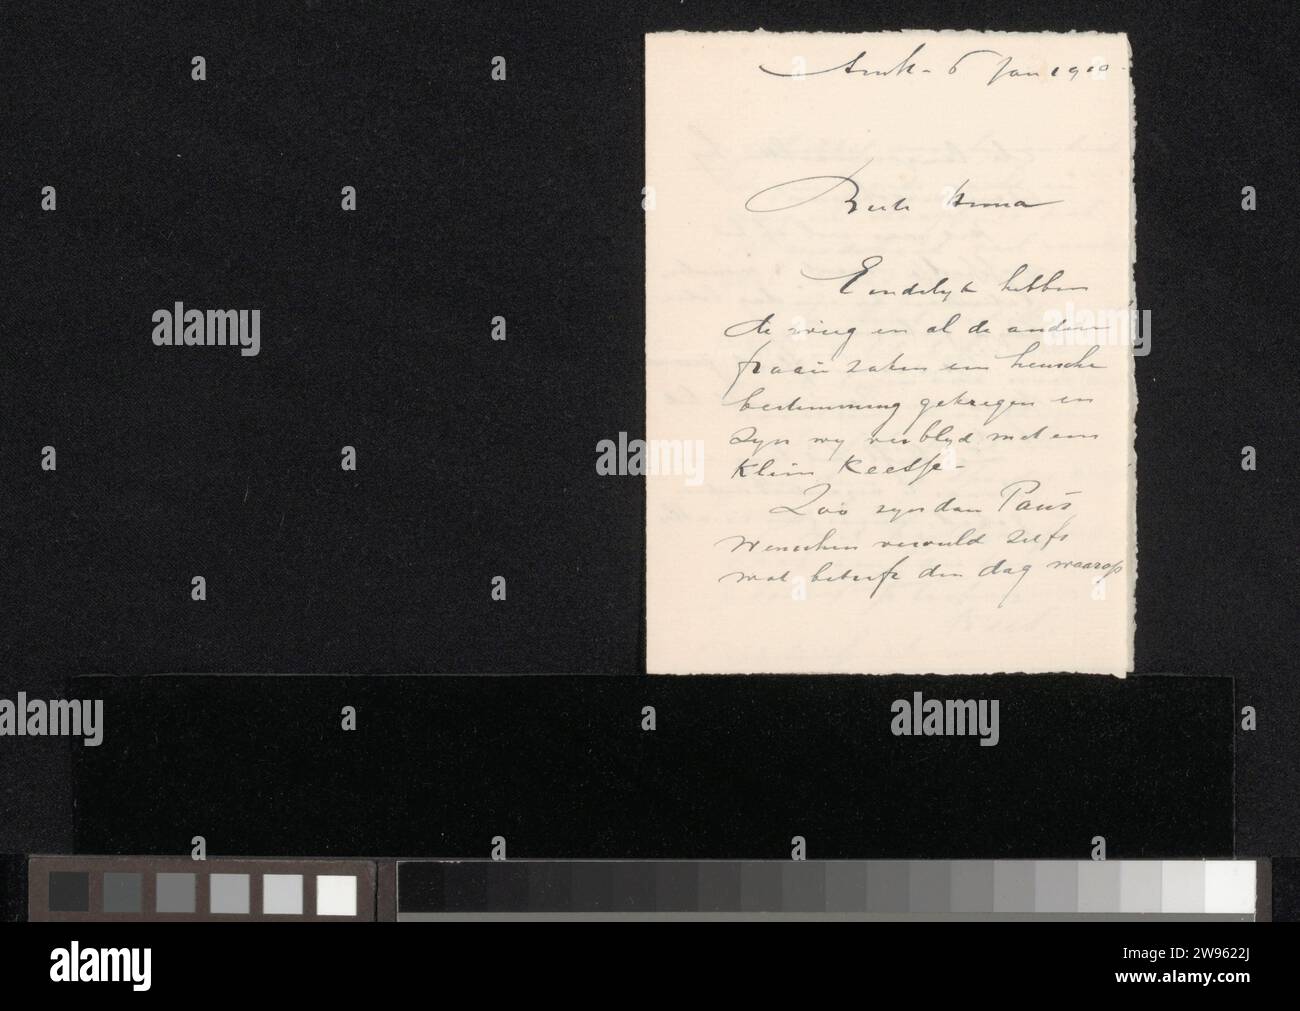 6 Jan 1910
Beste Anna
Eindelijk hebben
de wieg en al de andere
fraaie zaken een heusche
bestemming gekregen en
zijn wij verblijd met een
klein Keesje
Zoo zijn dan Paus
wenschen vervuld zelfs
wat betreft den dag waarop
a
alamy
alamy
alamy
alamy
alamy
Image ID: 2W9622J
www.alamy.com